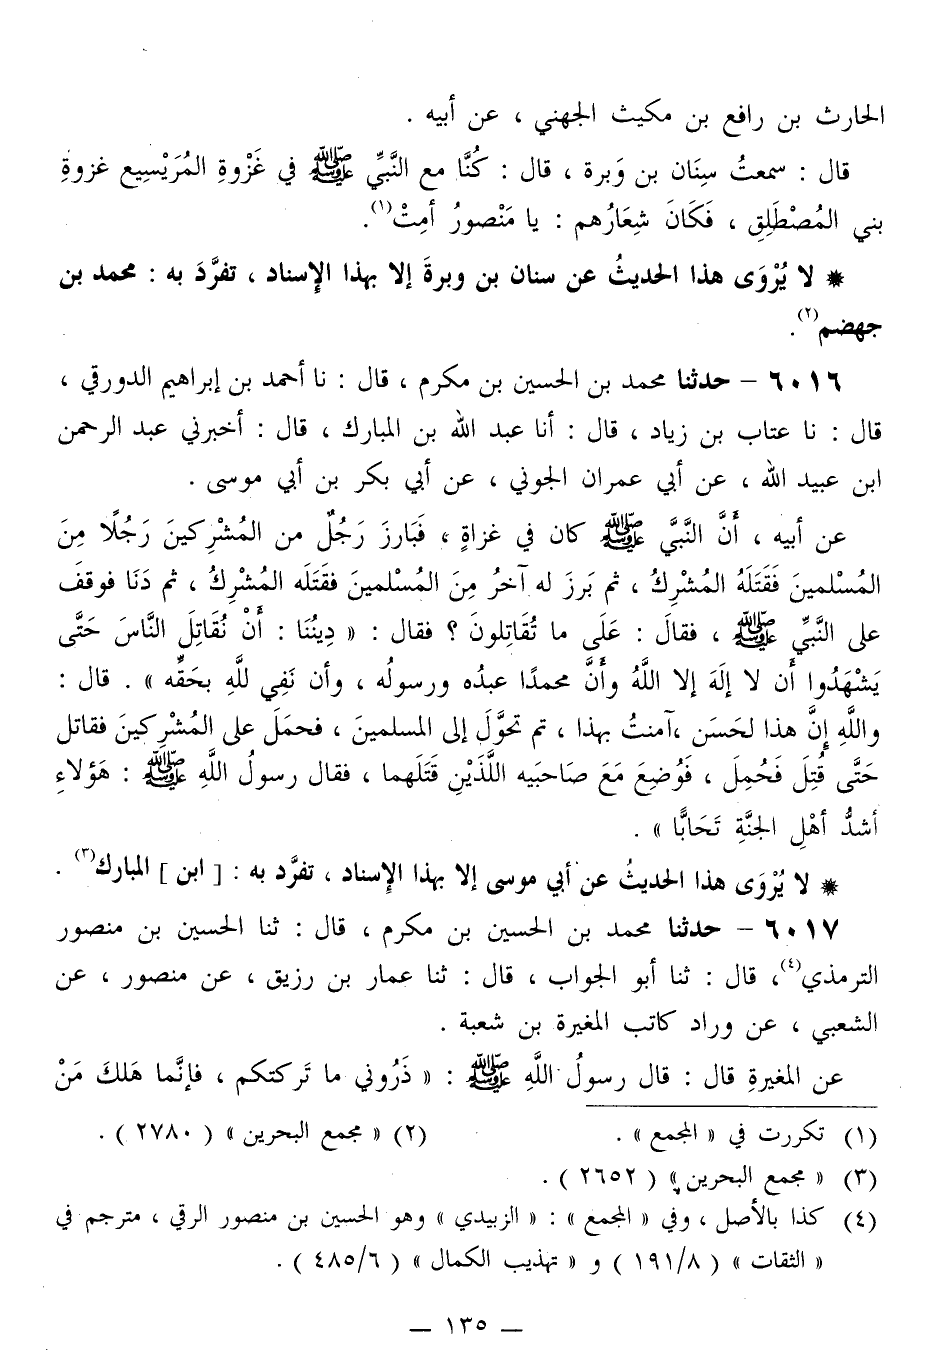 الحارث بن رافع بن مكيث الجهني ، عن أبيه .
قال : سمعتُ سِنَان بن وَبرة ، قال : كُنَّا مع النَّبيِّ ﷺ في غَزْوةِ المُرَيْسِيع غزوةِ
بني المُصْطَلِقِ ، فَكَانَ شِعَارُهم : يا مَنْصورُ أمِتْ(١).
* لا يُرْوَى هذا الحديثُ عن سنان بن وبرةَ إلا بهذا الإسناد ، تفرَّدَ به : محمد بن
جهضم(٢).
٦٠١٦ – حدثنا محمد بن الحسين بن مكرم ، قال : نا أحمد بن إبراهيم الدورقي ،
قال : نا عتاب بن زياد ، قال : أنا عبد الله بن المبارك ، قال : أخبرني عبد الرحمن
ابن عبيد الله ، عن أبي عمران الجوني ، عن أبي بكر بن أبي موسى .
عن أبيه ، أَنَّ النَّبيَّ ﷺ كان في غزاةٍ ، فَبَارزَ رَجُلٌ من المُشْرِكينَ رَجُلًا مِنَ
المُسْلمينَ فَقَتَلَهُ المُشْركُ ، ثم بَرزَ له آخرُ مِنَ المُسْلمينَ فقَتَلَه المُشْركُ ، ثم دَنَا فوقفَ
على النَّبيِّ ﷺ ، فقالَ : عَلَى ما تُقَاتِلونَ ؟ فقال : « دِينُنَا : أَنْ نُقَاتِلَ النَّاسَ حَتَّى
يَشْهَدُوا أَن لا إلَهَ إلا اللَّهُ وأَنَّ محمدًا عبدُه ورسولُه ، وأن نَفِي للَّهِ بحَقِّه » . قال :
واللَّهِ إنَّ هذا لحَسَن ،آمنتُ بهذا ، تم تحوَّلَ إلى المسلمينَ ، فحمَلَ على المُشْركينَ فقاتل
حَتَّى قُتِلَ فَحُمِلَ ، فَوُضِعَ مَعَ صَاحبَيه اللَّذَيْنِ قَتَلَهما ، فقال رسولُ اللَّهِ ﷺ : هَؤلاءِ
أشدُّ أهْلِ الجنَّةِ تَحَابًّا » .
* لا يُرْوَى هذا الحديثُ عن أبي موسى إلا بهذا الإسناد ، تفرَّد به : [ ابن ] المبارك(٣) .
٦٠١٧ – حدثنا محمد بن الحسين بن مكرم ، قال : ثنا الحسين بن منصور
الترمذي(٤)، قال : ثنا أبو الجواب ، قال : ثنا عمار بن رزيق ، عن منصور ، عن
الشعبي ، عن وراد كاتب المغيرة بن شعبة .
عن المغيرةِ قال : قال رسولُ اللَّهِ ﷺ : « ذَرُوني ما تَركتكم ، فإنَّما هَلكَ مَنْ
(١) تكررت في « المجمع » . (٢) « مجمع البحرين » ( ٢٧٨٠ ) .
(٣) « مجمع البحرين » ( ٢٦٥٢ ) .
(٤) كذا بالأصل ، وفي « المجمع » : « الزبيدي » وهو الحسين بن منصور الرقي ، مترجم في
« الثقات » ( ١٩١/٨ ) و « تهذيب الكمال » ( ٤٨٥/٦ ) .
— ١٣٥ —